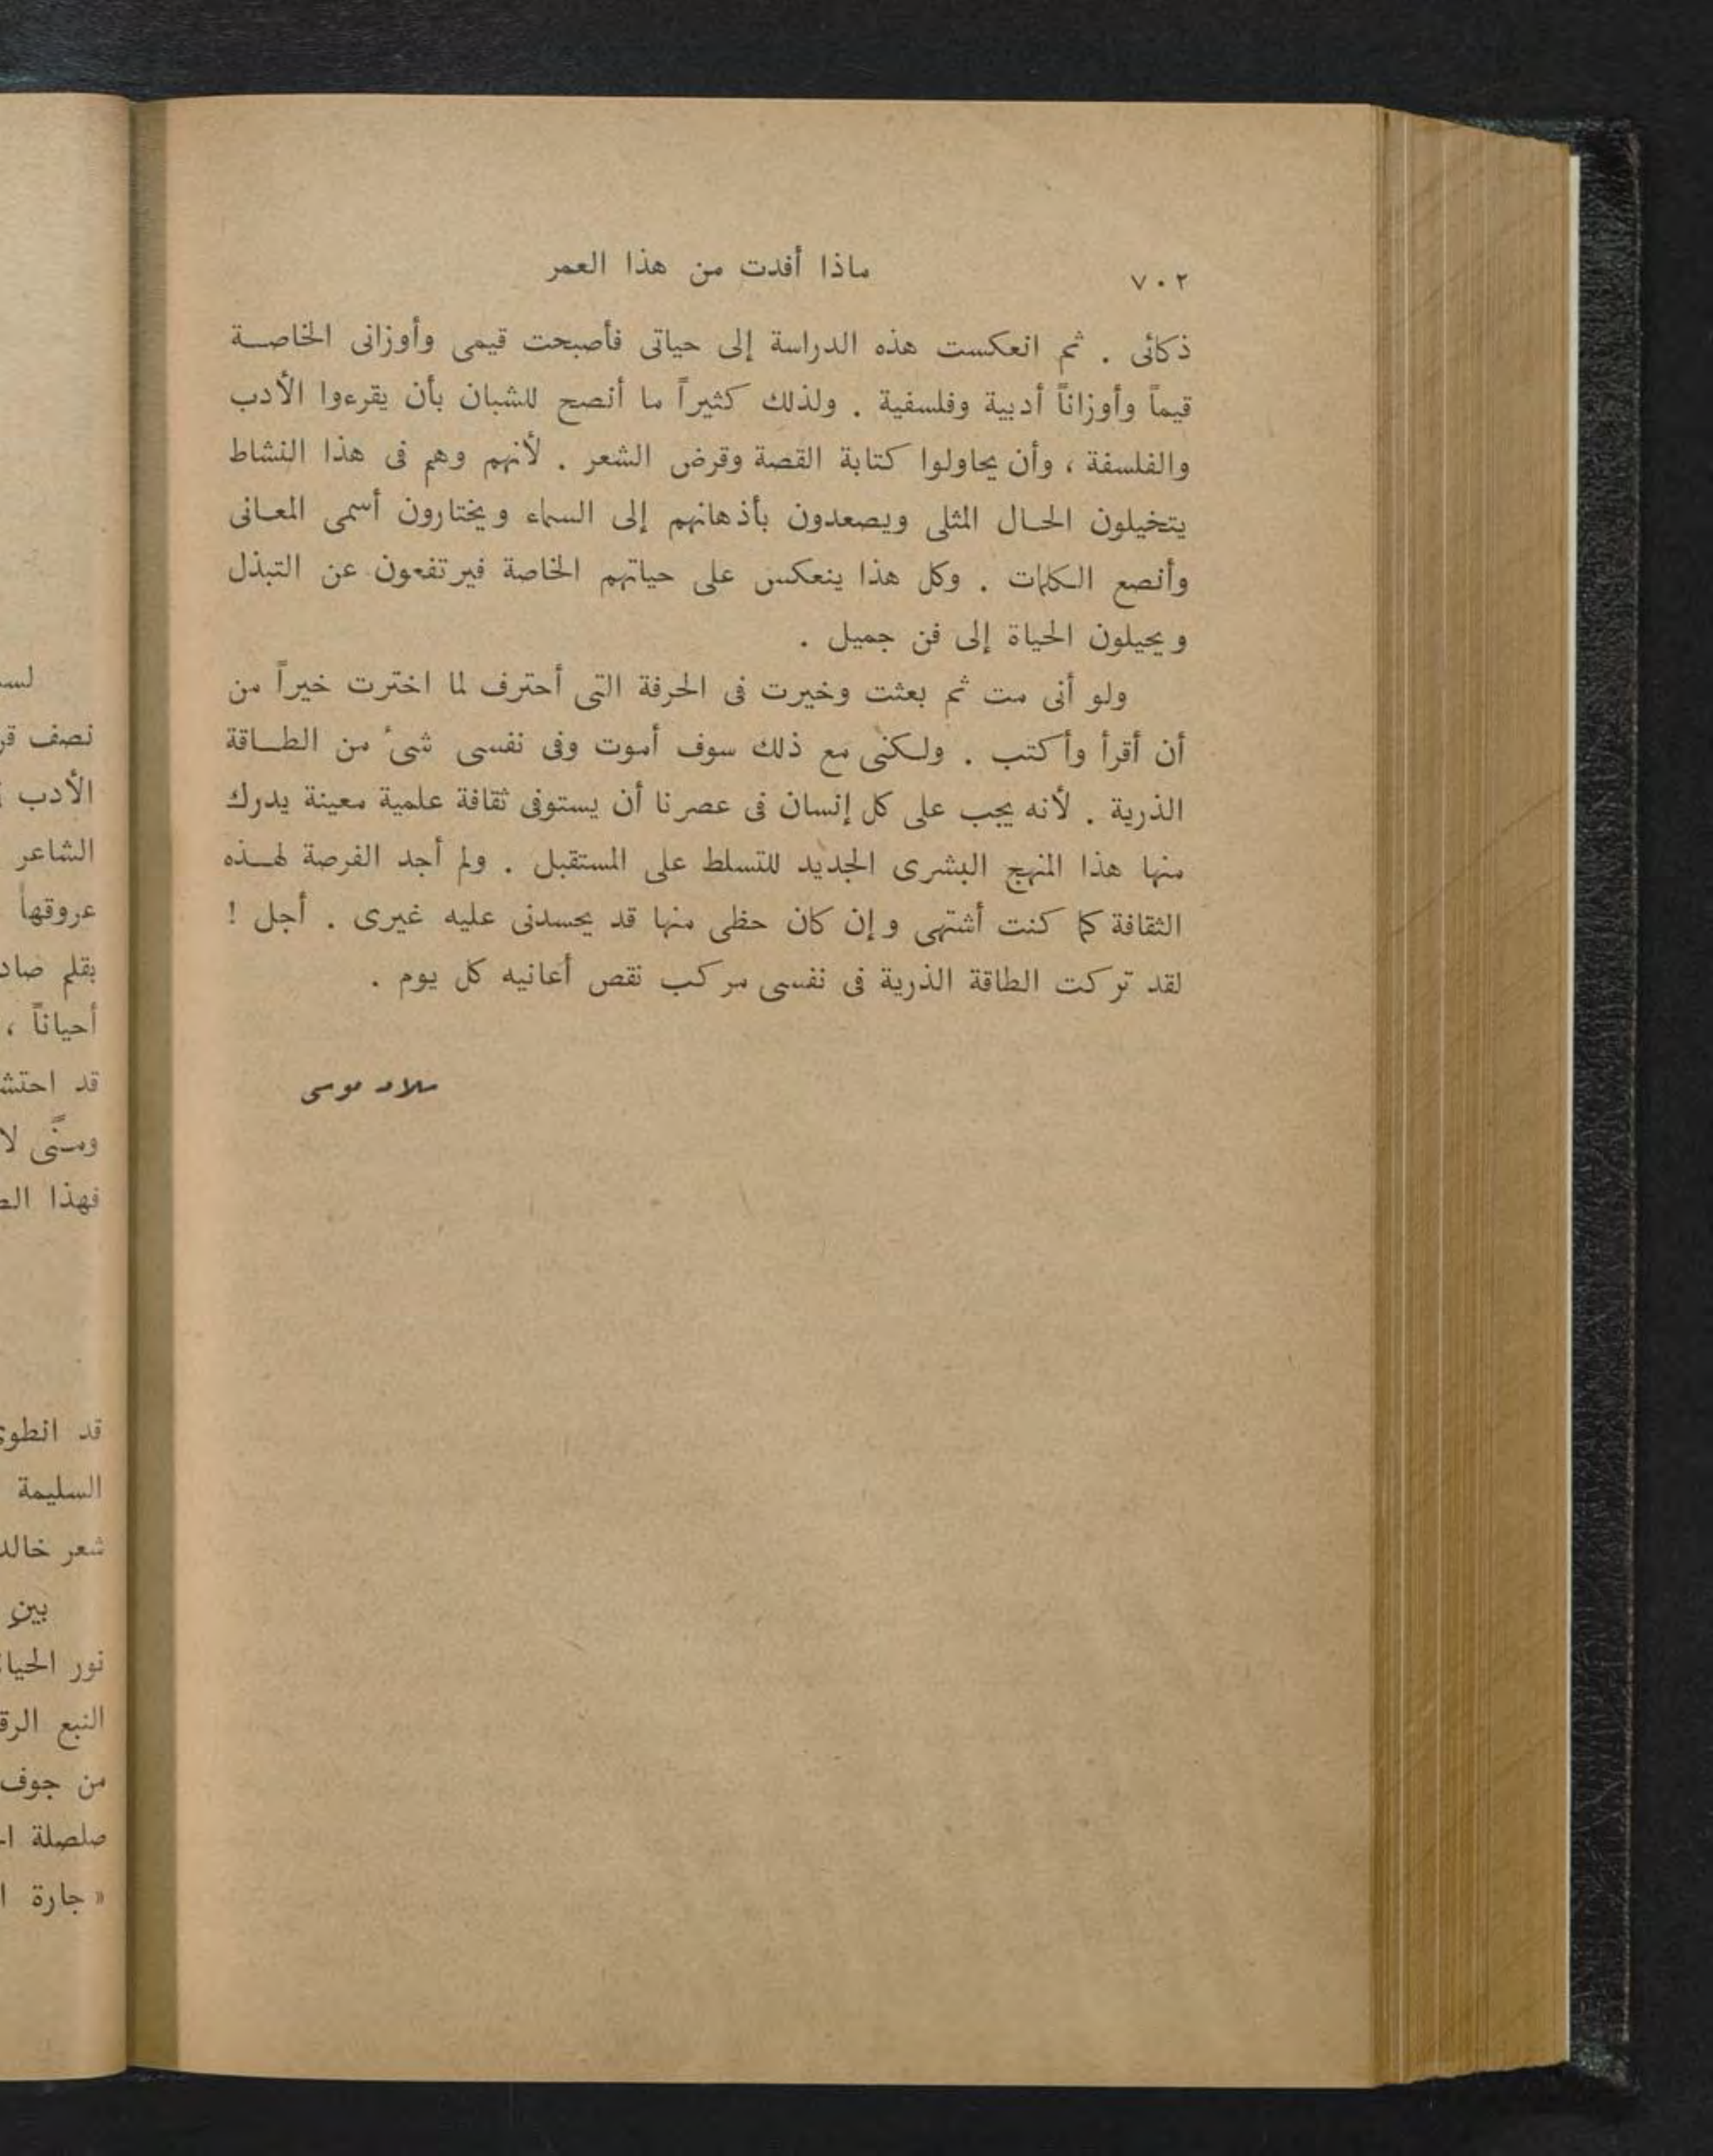 ٧٠٢
ماذا أفدت من هذا العمر
ذكائى . ثم انعكست هذه الدراسة إلى حياتى فأصبحت قيمى وأوزانى الخاصة
قيماً وأوزاناً أدبية وفلسفية . ولذلك كثيراً ما أنصح للشبان بأن يقرءوا الأدب
والفلسفة ، وأن يحاولوا كتابة القصة وقرض الشعر . لأنهم وهم فى هذا النشاط
يتخيلون الحال المثلى ويصعدون بأذهانهم إلى السماء ويختارون أسمى المعانى
وأنصع الكلمات . وكل هذا ينعكس على حياتهم الخاصة فيرتفعون عن التبذل
ويحيلون الحياة إلى فن جميل .
ولو أنى مت ثم بعثت وخيرت فى الحرفة التى أحترف لما اخترت خيراً من
أن أقرأ وأكتب . ولكنى مع ذلك سوف أموت وفى نفسى شىء من الطاقة
الذرية . لأنه يجب على كل إنسان فى عصرنا أن يستوفى ثقافة علمية معينة يدرك
منها هذا المنهج البشرى الجديد للتسلط على المستقبل . ولم أجد الفرصة لهذه
الثقافة كما كنت أشتهى وإن كان حظى منها قد يحسدنى عليه غيرى . أجل !
لقد تركت الطاقة الذرية فى نفسى مركب نقص أعانيه كل يوم .
سلامه موسى
نصف
الأدب
الشاعر
عروقها
بقلم
أحياناً ،
قد
لا
فهذا
قد
السليمة
شعر
بين
نور
النبع
من جوف
صلصلة
« جارة